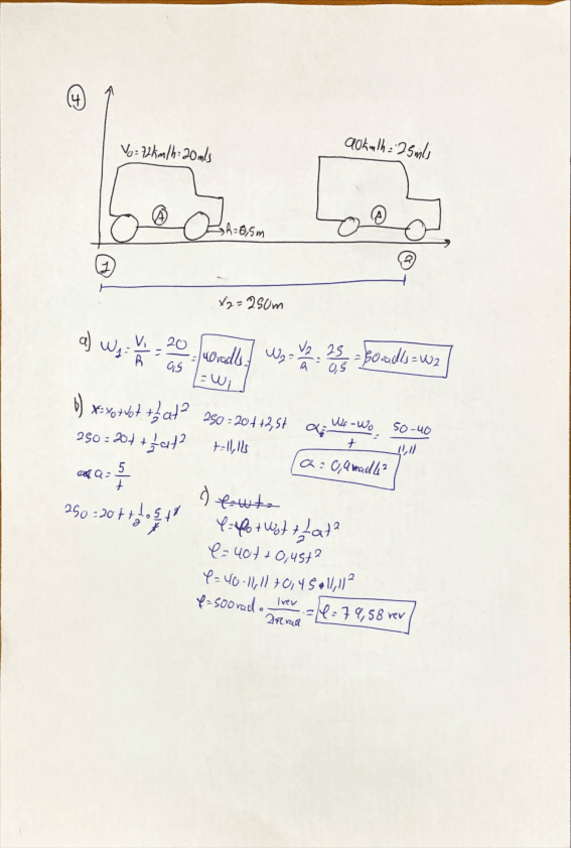 4
V₀=72km/h=20m/s
90km/h=25m/s
A
A
R=0,5m
1
2
x₂=250m
a) ω₁=V₁/R=20/0,5=40rad/s=ω₁
ω₂=V₂/R=25/0,5=50rad/s=ω₂
b) x=x₀+v₀t+1/2at²
250=20t+1/2at²
a=5/t
250=20t+1/2·5/t·t²
250=20t+2,5t
t=11,11s
α=ωf-ω₀/t=50-40/11,11
α=0,9rad/s²
c) φ=ωt=
φ=φ₀+ω₀t+1/2αt²
φ=40t+0,45t²
φ=40·11,11+0,45·11,11²
φ=500rad·1rev/2πrad=φ=79,58rev